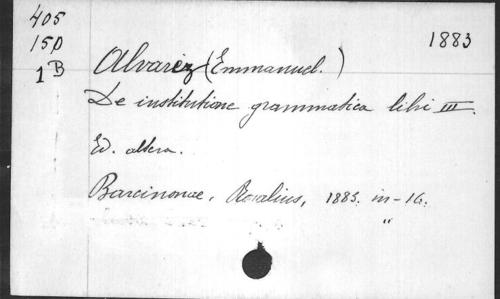 405
15D
1B
1883
Alvarez (Emmanuel.)
De institutione grammatica libri III.
Ed. altera.
Barcinonae, Rosalius, 1883. in-16.
"